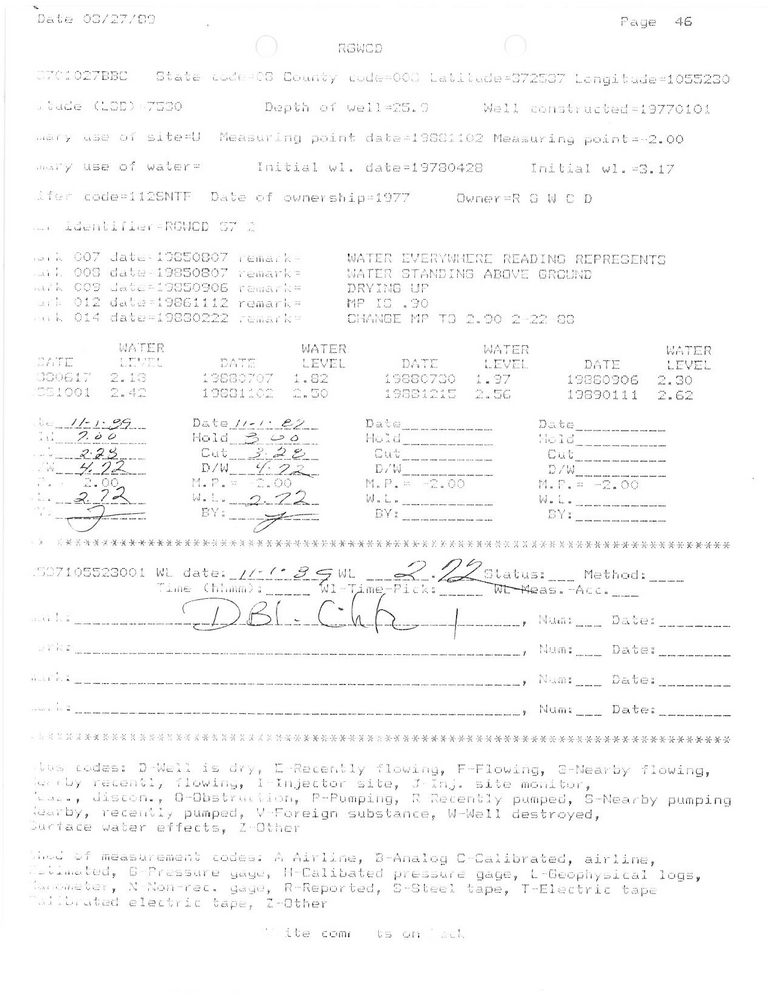 Date 03/27/89 Page 46
RGWCD
3701027BBC State code=08 County code=003 Latitude=372537 Longitude=1055230
itude (LSD)=7530 Depth of well=25.9 Well constructed=19770101
mary use of site=U Measuring point date=19881102 Measuring point=-2.00
mary use of water= Initial wl. date=19780428 Initial wl.=3.17
ifer code=112SNTF Date of ownership=1977 Owner=R G W C D
identifier=RGWCD 57 2
ark 007 date=19850807 remark= WATER EVERYWHERE READING REPRESENTS
ark 008 date=19850807 remark= WATER STANDING ABOVE GROUND
ark 009 date=19850906 remark= DRYING UP
ark 012 date=19861112 remark= MP IS .90
ark 014 date=19880222 remark= CHANGE MP TO 2.90 2-22 88
WATER WATER WATER WATER
DATE LEVEL DATE LEVEL DATE LEVEL DATE LEVEL
880617 2.13 19880707 1.82 19880730 1.97 19880906 2.30
881001 2.42 19881102 2.50 19881215 2.56 19890111 2.62
te 11-1-89 Date 11-1-89 Date Date
ld 7.00 Hold 3 00 Hold Hold
2.28 Cut 3.28 Cut Cut
W 4.72 D/W 4.72 D/W D/W
2.00 M.P.= -2.00 M.P.= -2.00 M.P.= -2.00
L. 2.72 W.L. 2.72 W.L. W.L.
Y: BY: BY: BY:
** ******************************************************************************
537105523001 WL date: 11-1-89 WL 2.72 Status: Method:
Time (hhmm): Wl-Time-Pick: WL-Meas.-Acc.
ark: DBl. Chk , Num: Date:
ark: , Num: Date:
ark: , Num: Date:
ark: , Num: Date:
********************************************************************************
tus codes: D-Well is dry, E-Recently flowing, F-Flowing, G-Nearby flowing,
Nearby recently flowing, I-Injector site, J-Inj. site monitor,
discon., O-Obstruction, P-Pumping, R-Recently pumped, S-Nearby pumping
Nearby, recently pumped, V-Foreign substance, W-Well destroyed,
Surface water effects, Z-Other
thod of measurement codes: A-Airline, B-Analog C-Calibrated, airline,
Estimated, G-Pressure gage, H-Calibated pressure gage, L-Geophysical logs,
Manometer, N-Non-rec. gage, R-Reported, S-Steel tape, T-Electric tape
Calibrated electric tape, Z-Other
ite comm ts on back